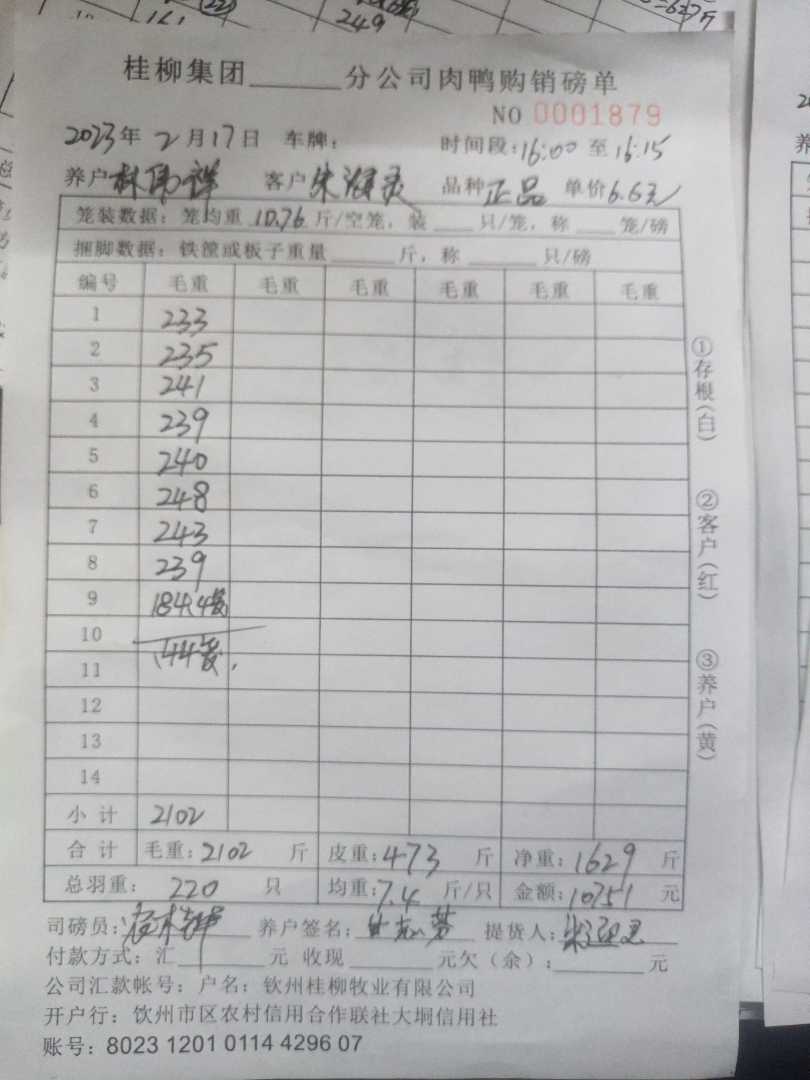 249
桂柳集团______分公司肉鸭购销磅单
NO 0001879
2023年2月17日 车牌: 时间段:16:00至16:15
养户 林 祥 客户 朱 灵 品种 正品 单价6.6元
笼装数据: 笼均重 10.76 斤/空笼, 装____只/笼, 称____笼/磅
捆脚数据: 铁筐或板子重量______斤, 称______只/磅
编号 毛重 毛重 毛重 毛重 毛重 毛重
1 233
2 235
3 241
4 239
5 240
6 248
7 243
8 239
9 184.4
10
11 44
12
13
14
小计 2102
合计 毛重:2102 斤 皮重:473 斤 净重:1629 斤
总羽重: 220 只 均重:7.4 斤/只 金额:10751 元
司磅员: 养户签名: 提货人:
付款方式: 汇______元 收现______元欠(余):______元
公司汇款帐号: 户名: 钦州桂柳牧业有限公司
开户行: 钦州市区农村信用合作联社大垌信用社
账号: 8023 1201 0114 4296 07
①存根(白)
②客户(红)
③养户(黄)